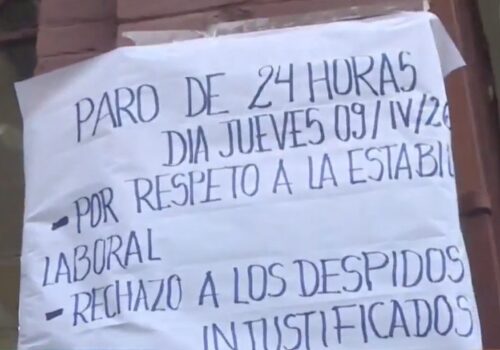 PARO DE 24 HORAS
DIA JUEVES 09/IV/26
- POR RESPETO A LA ESTABIL
LABORAL
- RECHAZO A LOS DESPIDOS
INJUSTIFICADOS